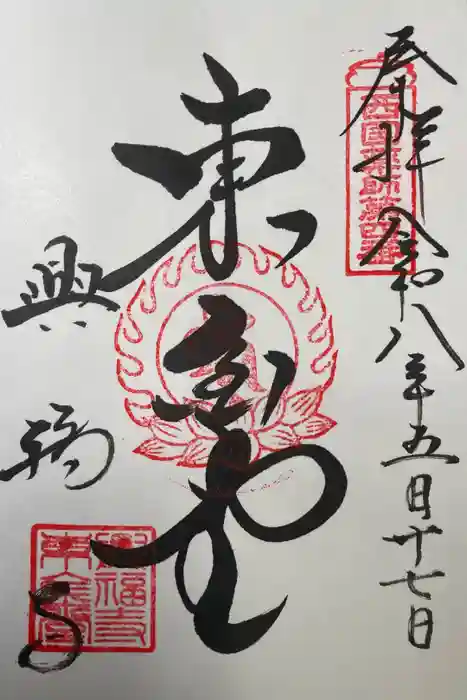 奉拝 令和八年五月廿七日
西国薬師第四番
東金堂
興福寺
興福寺
東金堂